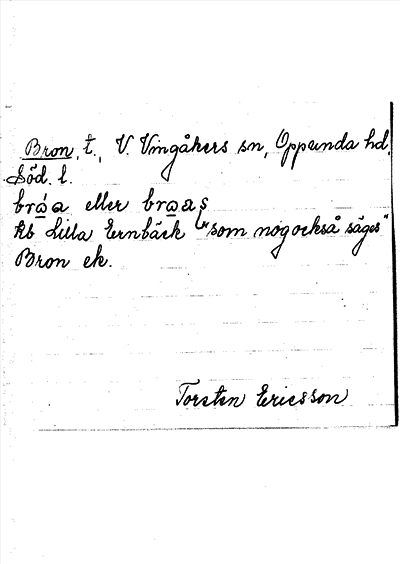 Bron, t., V. Vingåkers sn, Oppunda hd,
Söd. l.
bråa eller braaş
Ab Lilla Ernbäck "som nog också säges"
Bron ek.
Torsten Ericsson